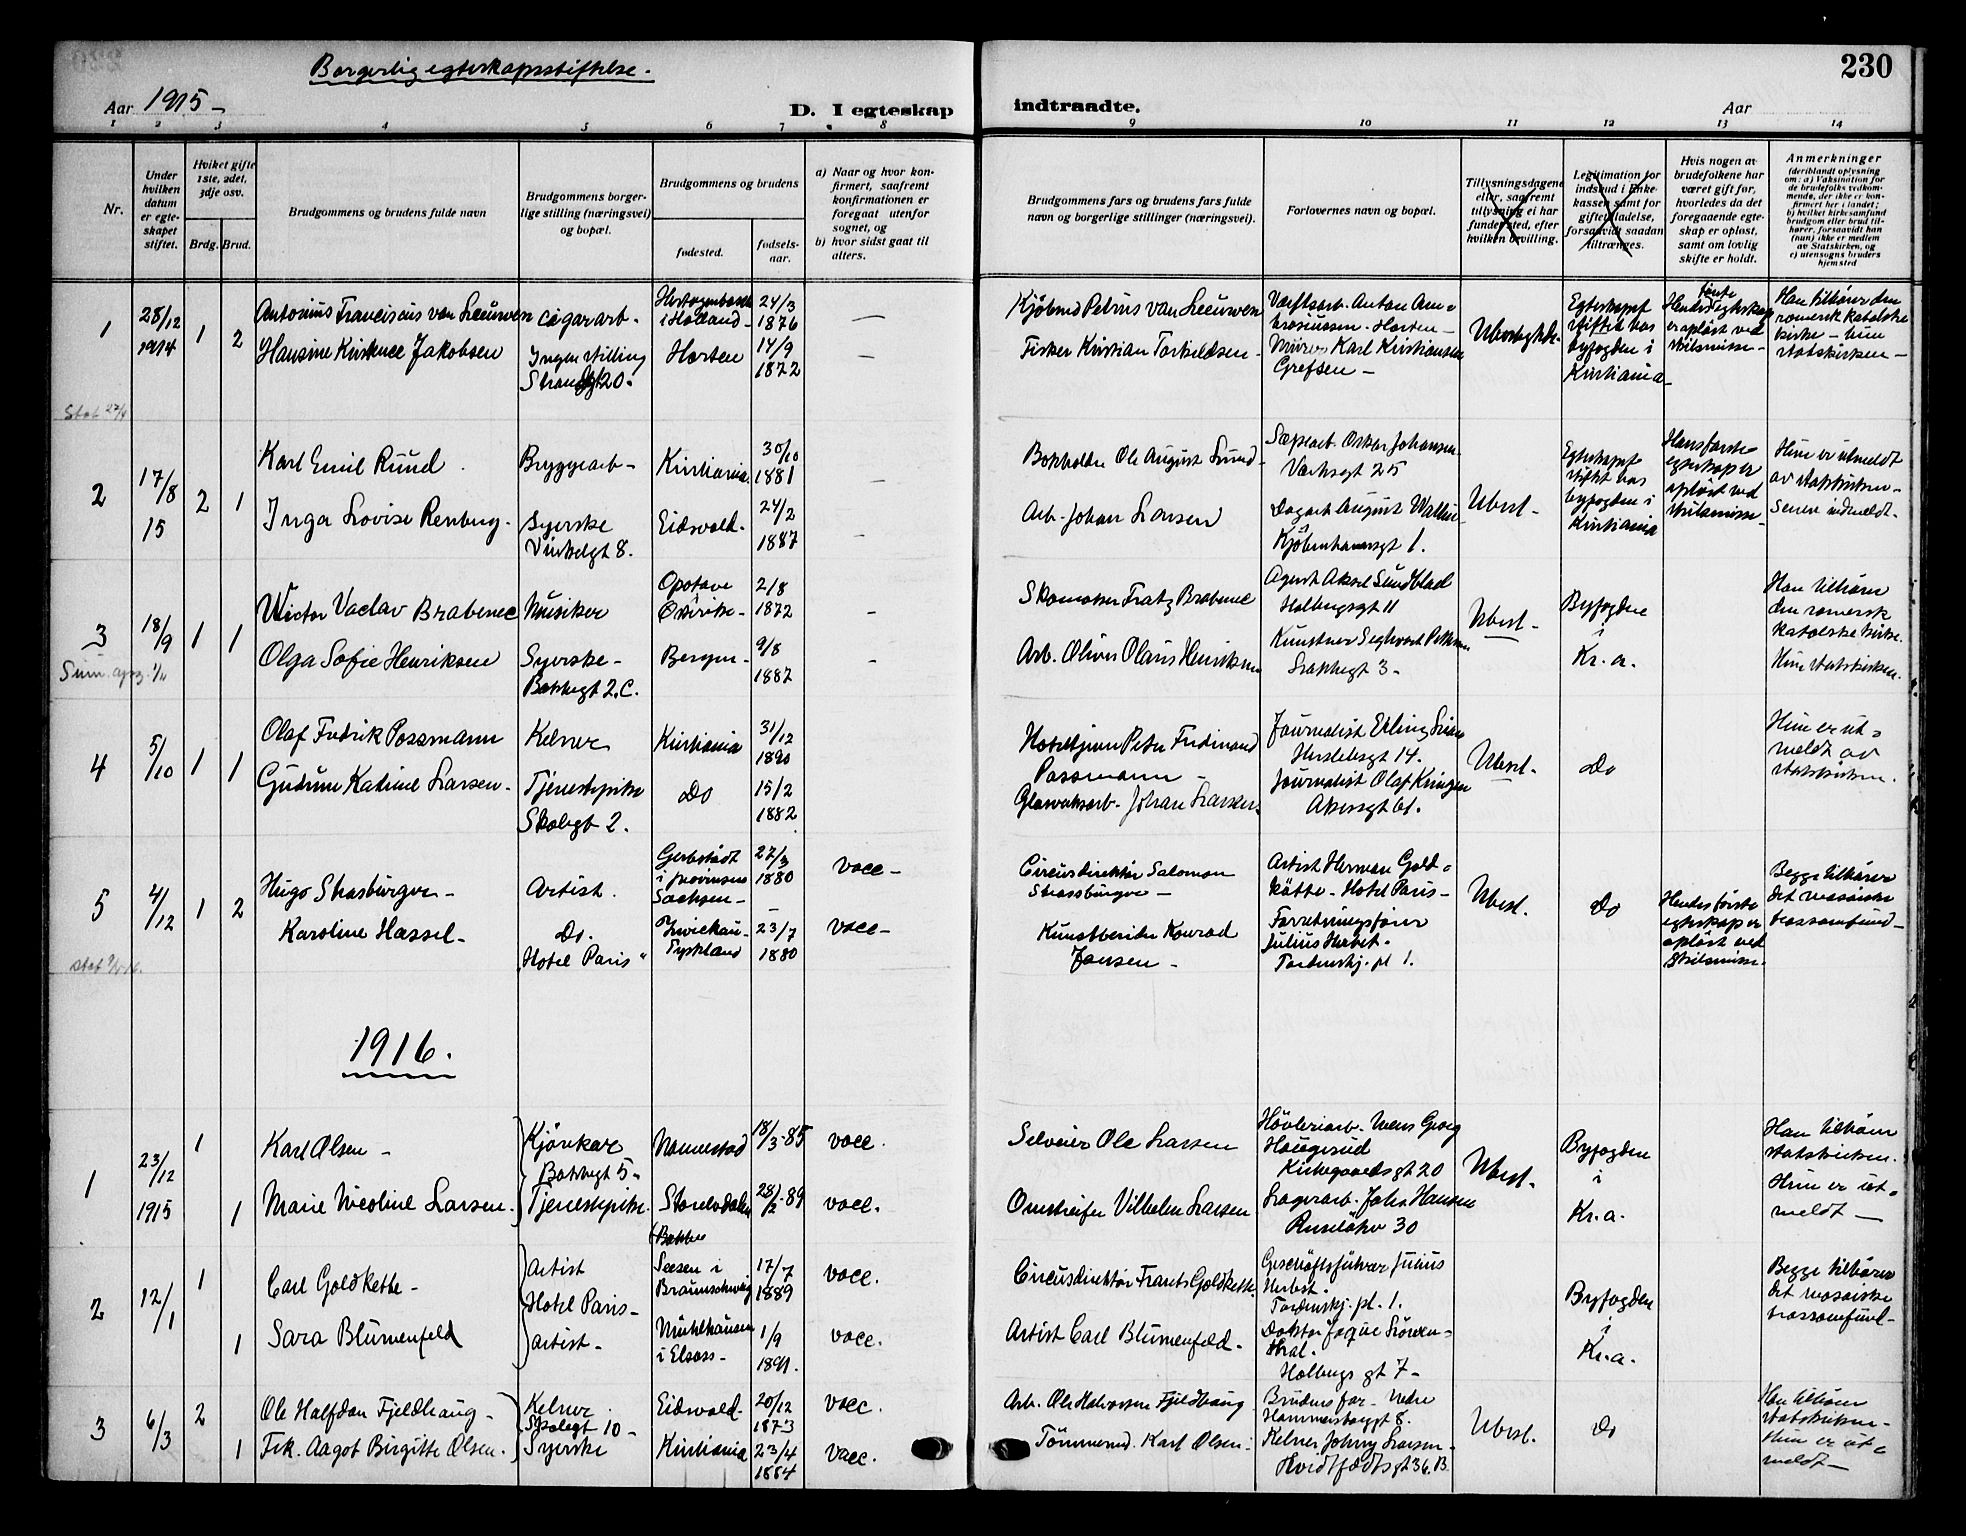 Borgerlig egteskapsstiftelse.
230
Aar 1915 –
D. I egteskap
indtraadte.
Aar
1 2 3 4 5 6 7 8 9 10 11 12 13 14
Nr.
Under hvilken datum er egteskapet stiftet.
Hvilket gifte 1ste, 2det, 3dje osv.
Brdg. Brud.
Brudgommens og brudens fulde navn
Brudgommens borgerlige stilling (næringsvei) og bopæl.
Brudgommens og brudens
fødested.
fødselsaar.
a) Naar og hvor konfirmert, saafremt konfirmationen er foregaat utenfor sognet, og
b) hvor sidst gaat til alters.
Brudgommens fars og brudens fars fulde navn og borgerlige stillinger (næringsvei).
Forlovernes navn og bopæl.
Tillysningsdagene eller, saafremt tillysning ei har fundet sted, efter hvilken bevilling.
Legitimation for indskud i Enkekassen samt for giftetilladelse, forsaavidt saadan tiltrænges.
Hvis nogen av brudefolkene har været gift før, hvorledes da det foregaaende egteskap er opløst, samt om lovlig skifte er holdt.
Anmerkninger (deriblandt oplysning om: a) Vaksination for de brudefolks vedkommende, der ikke er konfirmert her i landet; b) hvilket kirkesamfund brudgom eller brud tilhører, forsaavidt han (hun) ikke er medlem av Statskirken, og c) utensogns bruders hjemsted
1
28/12
1914
1 2
Antonius Franciscus van Leeuwen
Hansine Kirstine Jakobsen
cigararb.
Ingen stilling
Strandgt 20.
Hertogenbosch
i Holland –
Horten
24/3
1876
14/9
1872
Kjøbmd Petrus van Leeuwen
Fisker Kristian Torkildsen –
Værftsarb. Anton Am=
brosiussen. Horten –
Murer Karl Kristiansen
Grefsen –
Ubeslegtede.
Egteskapet
stiftet hos
byfogden i
Kristiania –
Hendes første egteskap
er opløst ved
skilsmisse –
Han tilhører den
romersk katolske
kirke – hun
statskirken –
2
17/8
15
2 1
Karl Emil Ruud
Inga Lovise Renberg.
Bryggearb –
Syerske
Vinkelgt 8.
Kristiania
Eidsvold.
30/10
1881
24/2
1887
Bokholder Ole August Lund
Arb. Johan Larsen
Sæpearb. Oskar Johansen
Verksgt 25
Dagarb August
Kjøbenhavnsgt 1.
Ubesl.
Egteskapet
stiftet hos
byfogden i
Kristiania
Hans første
egteskap er
opløst ved
skilsmisse –
Hun er utmeldt
av statskirken –
Senere indmeldt.
3
18/9
1 1
Victor Vaclav Brabenec
Olga Sofie Henriksen
Musiker
Syerske –
Bakkegt 2.C.
Østrike –
Bergen –
2/8
1872
9/8
1887
Skomaker Fratz Brabenec
Arb. Oliver Olaus Henriksen
Agent Aksel Sundblad
Holbergsgt 11
Kunstner
Lakkegt 3 –
Ubesl –
Byfogden
i
Kr.a.
Han tilhører
den romersk
katolske kirke.
Hun statskirken.
4
5/10
1 1
Olaf Fredrik Possmann
Gudrun Katinel Larsen –
Kelner
Tjenestepike
Skolegt 2.
Kristiania
Do
31/12
1890
15/2
1882
Peter Ferdinand
Possmann –
Johan Larsen
Journalist Erling
Herslebsgt 14.
Journalist Olaf Kringen
Akersgt 61.
Ubesl.
Do
Hun er ut=
meldt av
statskirken.
5
4/12
1 2
Hugo Strasburger –
Karoline Hassel –
Artist.
Do.
Hotel Paris
Gerbstädt
i provinsen
Sachsen –
Zwickau –
Tyskland
27/3
1880
23/7
1880
vacc –
vacc –
Circusdirektør Salomon
Strassburger –
Kunstberider Konrad
Jansen –
Artist Herman Gold=
kätte – Hotel Paris –
Forretningsfører
Julius Herbst.
Tordenskj. pl 1.
Ubesl.
Do
Hendes første
egteskap er
opløst ved
skilsmisse.
Begge tilhører
det mosaiske
trossamfund –
1916.
1
23/12
1915
1
1
Karl Olsen –
Marie Nicoline Larsen.
Kjørekar
Bakkegt 5.
Tjenestepike.
Nannestad
Storelvdalen
18/3-85
28/2-89
vacc.
vacc.
Selveier Ole Larsen
Vilhelm Larsen
Høvleriarb. Georg
Haugerud
Kirkegaardsgt 20
Lagerarb. John Hansen
Ruseløkv 30
Ubesl.
Byfogden
i
Kr.a.
Han tilhører
statskirken.
Hun er ut=
meldt –
2
12/1
1
1
Carl Goldkette –
Sara Blumenfeld
Artist
Hotel Paris –
artist –
Seesen i
Braunschweig
Mühlhausen
i Elsass –
17/7
1889
1/9
1891.
vacc.
vacc.
Circusdirektør Frants Goldkette.
Artist Carl Blumenfeld.
Geschäftsführer Julius
Herbst.
Tordenskj. pl. 1.
Doktor Løwen=
thal.
Holbergs gt 7 –
Byfogden
i
Kr.a.
Begge tilhører
det mosaiske
trossamfund –
3
6/3
2
1
Ole Halfdan Fjeldhaug –
Frk. Aagot Birgitte Olsen.
Kelner
Skolegt 10 –
Syerske
Eidsvold
Kristiania
20/12
1873
23/4
1884
vacc.
vacc.
Arb. Ole Halvorsen Fjeldhaug
Tømmermd. Karl Olsen
Brudens far. Nedre
Hammersborggt 8.
Kelner Johny Larsen –
Hvidtfeldtsgt 36.B.
Ubesl.
Do
Han tilhører
statskirken –
Hun er ut=
meldt –